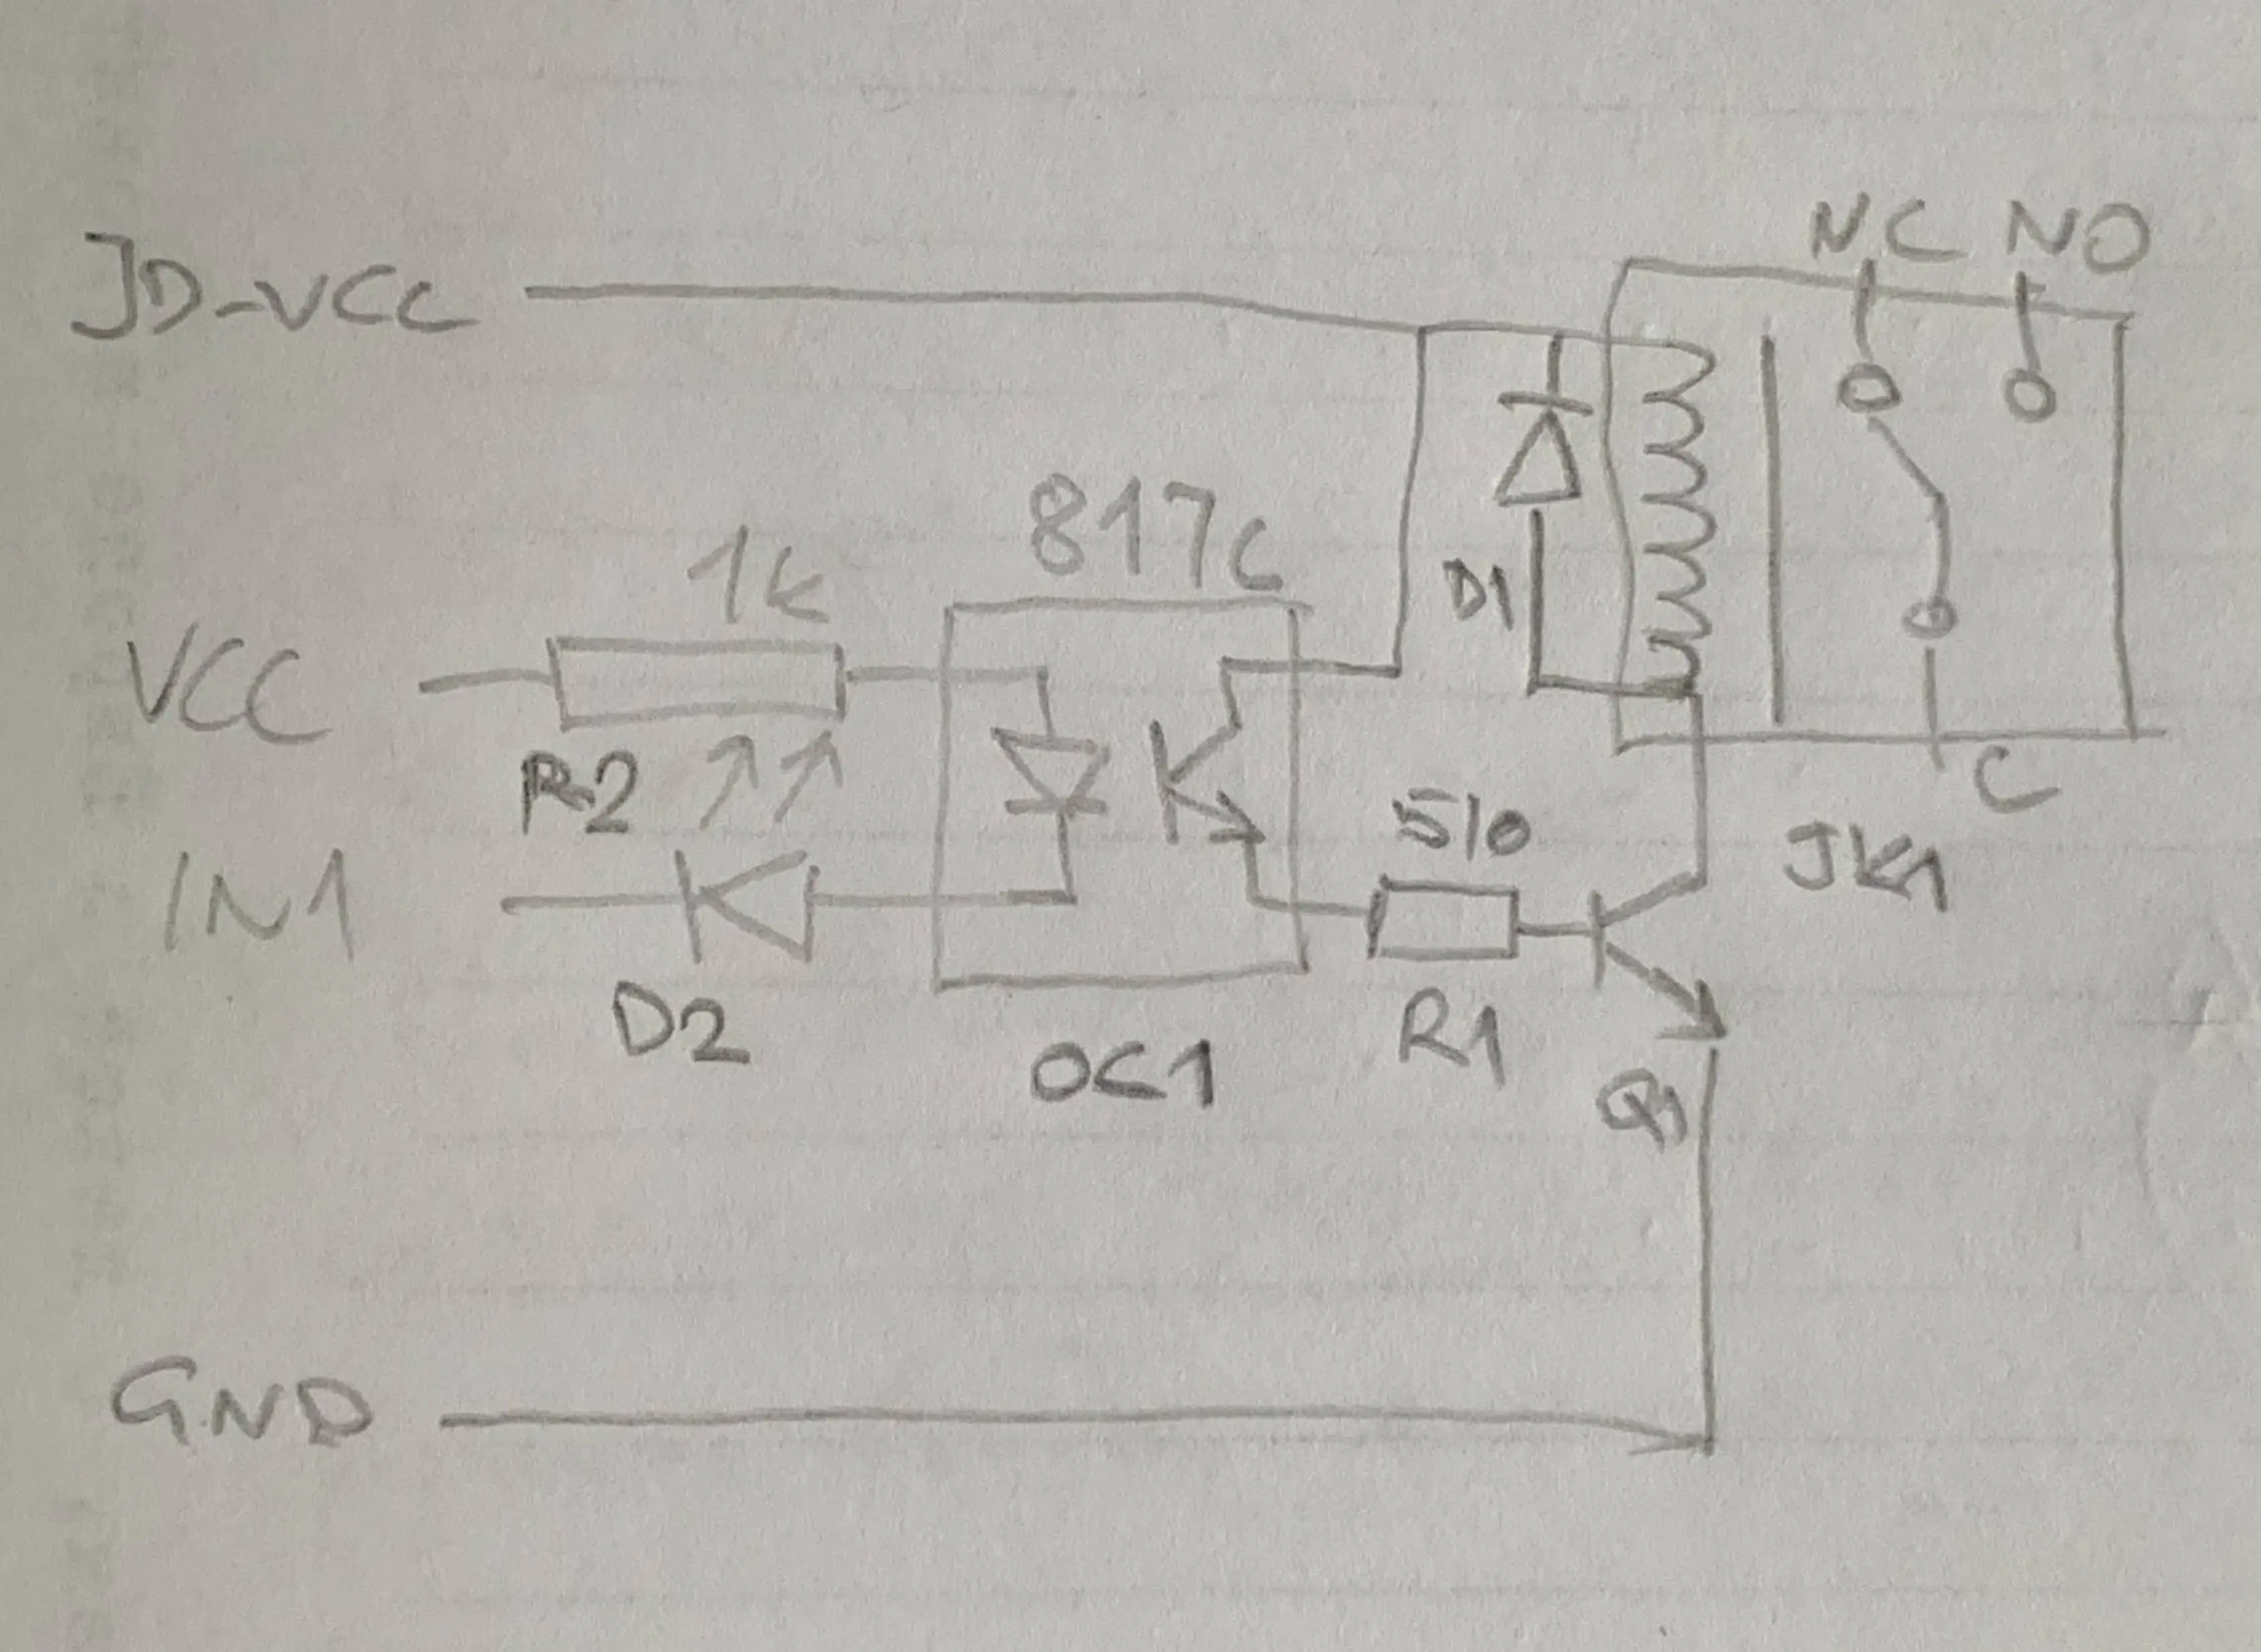 NC NO
JD-VCC
817C
1k
D1
VCC
R2
C
510
JK1
IN1
D2
OC1
R1
Q1
GND